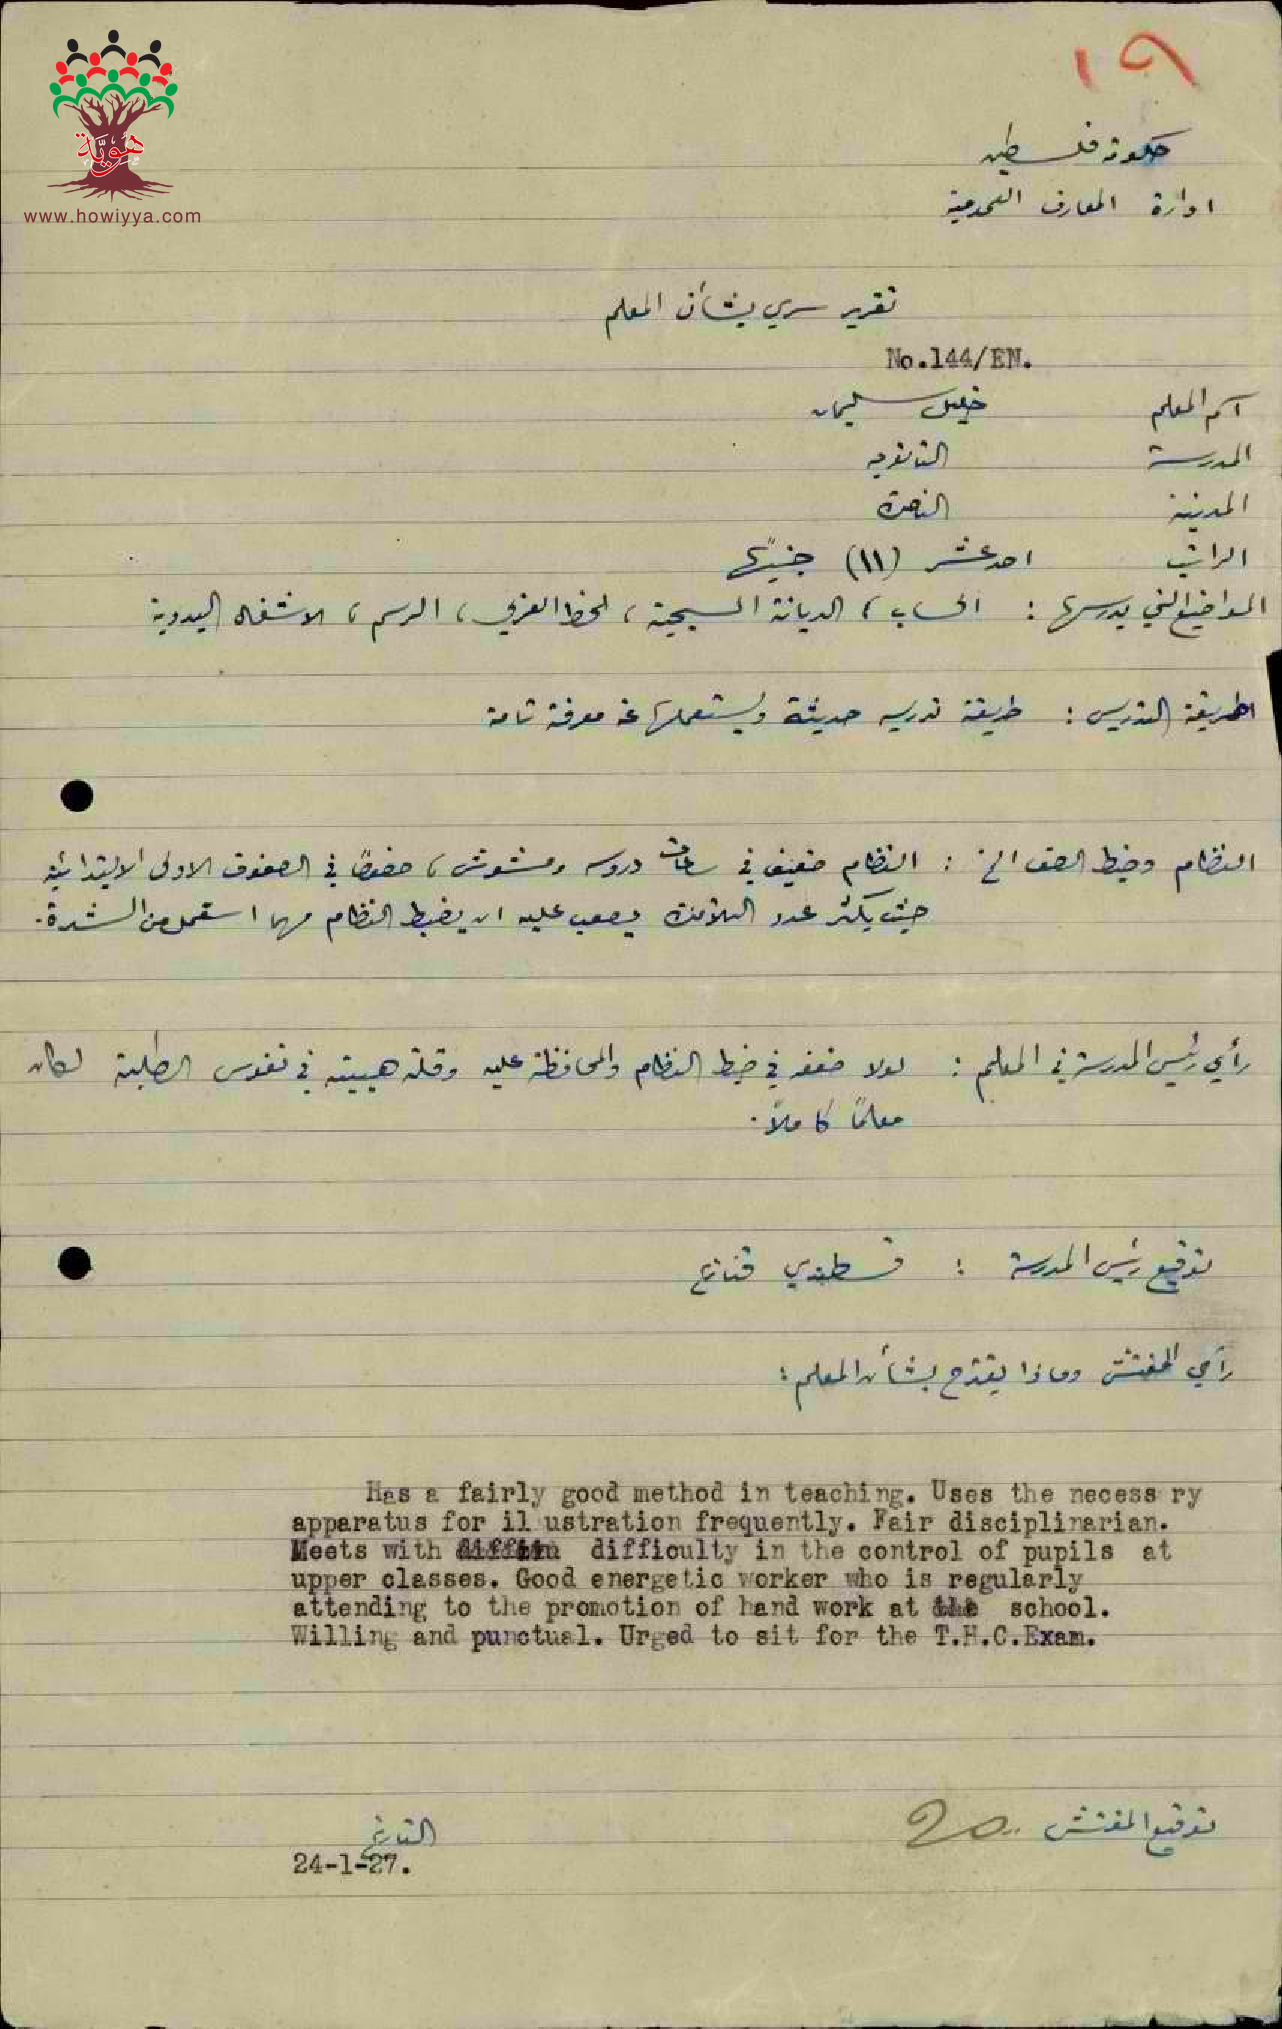 ١٩
هوية
www.howiyya.com
حكومة فلسطين
ادارة المعارف العمومية
تقرير سري بشأن المعلم
No.144/EN.
اسم المعلم خليل سليمان
المدرسة الثانوية
المدينة الناصرة
الراتب احد عشر (١١) جنيهًا
المواضيع التي يدرسها : الحساب، الديانة المسيحية، الخط العربي، الرسم، الاشغال اليدوية
طريقة التدريس : طريقة تدريسه حديثة ويستعملها عن معرفة تامة
النظام وضبط الصف الخ : النظام ضعيف في ساعات دروسه ومشوش، خصوصًا في الصفوف الاولى الابتدائية
حيث يكثر عدد التلامذة يصعب عليه ان يضبط النظام مهما استعمل من الشدة.
رأي رئيس المدرسة في المعلم : لولا ضعفه في ضبط النظام والمحافظة عليه وقلة هيبته في نفوس الطلبة لكان
معلمًا كاملاً.
توقيع رئيس المدرسة : قسطندي قنازع
رأي المفتش وماذا يقترح بشأن المعلم :
Has a fairly good method in teaching. Uses the necess ry
apparatus for il ustration frequently. Fair disciplinarian.
Meets with difficulty in the control of pupils at
upper classes. Good energetic worker who is regularly
attending to the promotion of hand work at school.
Willing and punctual. Urged to sit for the T.H.C.Exam.
توقيع المفتش
التاريخ
24-1-27.